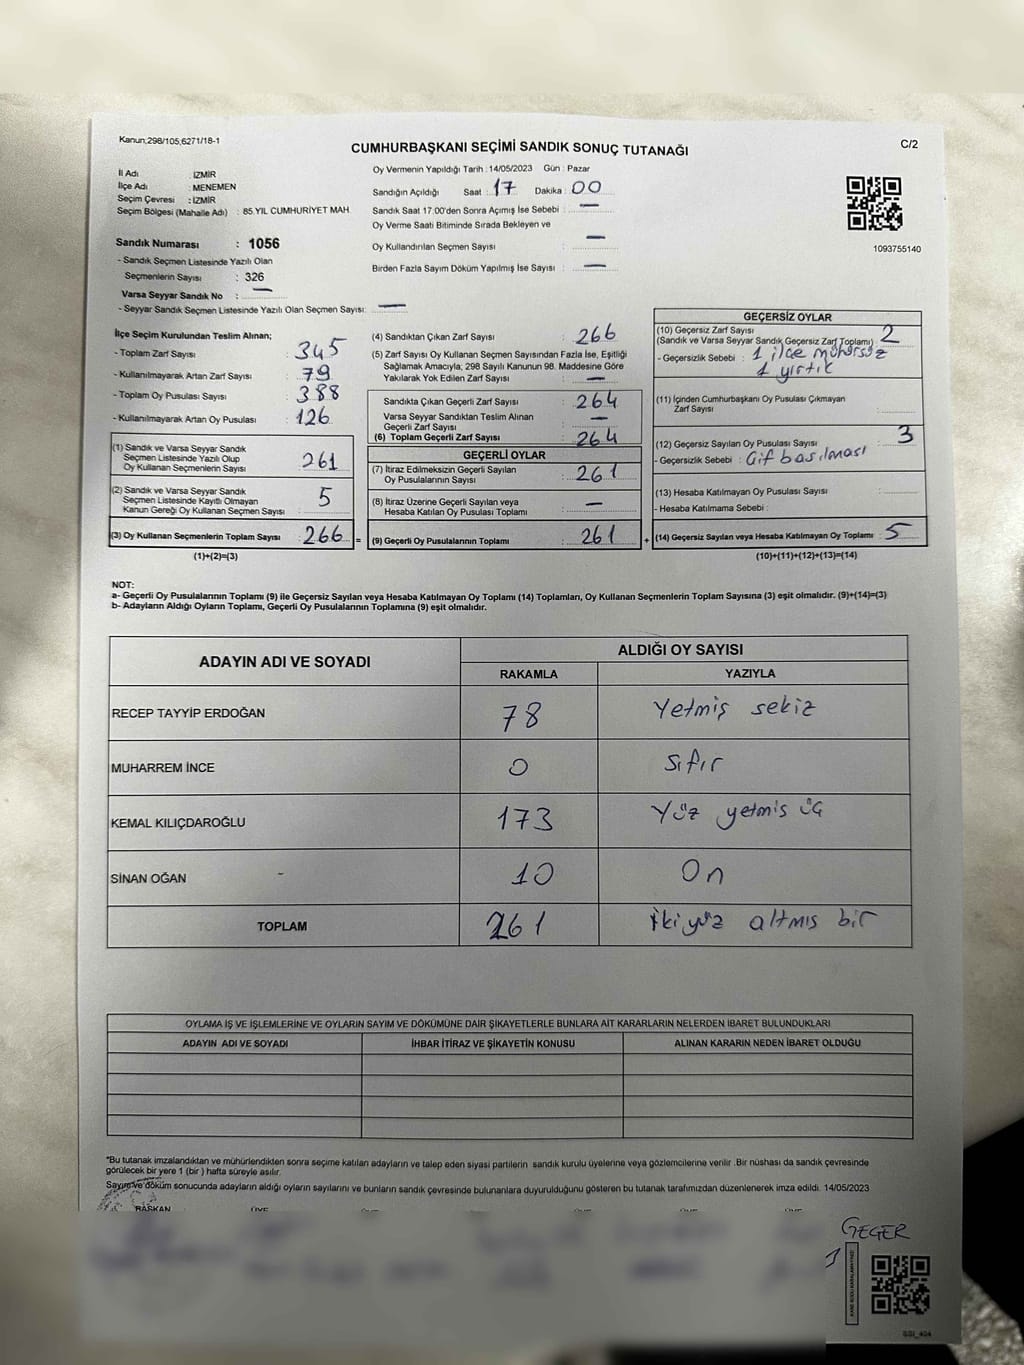 Kanun;298/105;6271/18-1
C/2
CUMHURBAŞKANI SEÇİMİ SANDIK SONUÇ TUTANAĞI
İl Adı : İZMİR
İlçe Adı : MENEMEN
Seçim Çevresi : İZMİR
Seçim Bölgesi (Mahalle Adı) : 85.YIL CUMHURİYET MAH.
Sandık Numarası : 1056
- Sandık Seçmen Listesinde Yazılı Olan
Seçmenlerin Sayısı : 326
Varsa Seyyar Sandık No : —
- Seyyar Sandık Seçmen Listesinde Yazılı Olan Seçmen Sayısı: —
Oy Vermenin Yapıldığı Tarih : 14/05/2023 Gün : Pazar
Sandığın Açıldığı Saat : 17 Dakika : 00
Sandık Saat 17.00'den Sonra Açımış İse Sebebi : —
Oy Verme Saati Bitiminde Sırada Bekleyen ve
Oy Kullandırılan Seçmen Sayısı : —
Birden Fazla Sayım Döküm Yapılmış İse Sayısı : —
1093755140
İlçe Seçim Kurulundan Teslim Alınan;
- Toplam Zarf Sayısı : 345
- Kullanılmayarak Artan Zarf Sayısı : 79
- Toplam Oy Pusulası Sayısı : 388
- Kullanılmayarak Artan Oy Pusulası : 126
(1) Sandık ve Varsa Seyyar Sandık
Seçmen Listesinde Yazılı Olup
Oy Kullanan Seçmenlerin Sayısı : 261
(2) Sandık ve Varsa Seyyar Sandık
Seçmen Listesinde Kayıtlı Olmayan
Kanun Gereği Oy Kullanan Seçmen Sayısı : 5
(3) Oy Kullanan Seçmenlerin Toplam Sayısı : 266
(1)+(2)=(3)
(4) Sandıktan Çıkan Zarf Sayısı : 266
(5) Zarf Sayısı Oy Kullanan Seçmen Sayısından Fazla İse, Eşitliği
Sağlamak Amacıyla, 298 Sayılı Kanunun 98. Maddesine Göre
Yakılarak Yok Edilen Zarf Sayısı : —
Sandıkta Çıkan Geçerli Zarf Sayısı : 264
Varsa Seyyar Sandıktan Teslim Alınan
Geçerli Zarf Sayısı : —
(6) Toplam Geçerli Zarf Sayısı : 264
GEÇERLİ OYLAR
(7) İtiraz Edilmeksizin Geçerli Sayılan
Oy Pusulalarının Sayısı : 261
(8) İtiraz Üzerine Geçerli Sayılan veya
Hesaba Katılan Oy Pusulası Toplamı : —
= (9) Geçerli Oy Pusulalarının Toplamı : 261 +
GEÇERSİZ OYLAR
(10) Geçersiz Zarf Sayısı
(Sandık ve Varsa Seyyar Sandık Geçersiz Zarf Toplamı) 2
- Geçersizlik Sebebi : 1 ilçe mühürsüz
1 yırtık
(11) İçinden Cumhurbaşkanı Oy Pusulası Çıkmayan
Zarf Sayısı :
(12) Geçersiz Sayılan Oy Pusulası Sayısı : 3
- Geçersizlik Sebebi : Çift basılması
(13) Hesaba Katılmayan Oy Pusulası Sayısı :
- Hesaba Katılmama Sebebi :
(14) Geçersiz Sayılan veya Hesaba Katılmayan Oy Toplamı : 5
(10)+(11)+(12)+(13)=(14)
NOT:
a- Geçerli Oy Pusulalarının Toplamı (9) ile Geçersiz Sayılan veya Hesaba Katılmayan Oy Toplamı (14) Toplamları, Oy Kullanan Seçmenlerin Toplam Sayısına (3) eşit olmalıdır. (9)+(14)=(3)
b- Adayların Aldığı Oyların Toplamı, Geçerli Oy Pusulalarının Toplamına (9) eşit olmalıdır.
ADAYIN ADI VE SOYADI
ALDIĞI OY SAYISI
RAKAMLA YAZIYLA
RECEP TAYYİP ERDOĞAN 78 Yetmiş sekiz
MUHARREM İNCE 0 sıfır
KEMAL KILIÇDAROĞLU 173 Yüz yetmis üç
SİNAN OĞAN 10 On
TOPLAM 261 İkiyüz altmıs bir
OYLAMA İŞ VE İŞLEMLERİNE VE OYLARIN SAYIM VE DÖKÜMÜNE DAİR ŞİKAYETLERLE BUNLARA AİT KARARLARIN NELERDEN İBARET BULUNDUKLARI
ADAYIN ADI VE SOYADI İHBAR İTİRAZ VE ŞİKAYETİN KONUSU ALINAN KARARIN NEDEN İBARET OLDUĞU
*Bu tutanak imzalandıktan ve mühürlendikten sonra seçime katılan adayların ve talep eden siyasi partilerin sandık kurulu üyelerine veya gözlemcilerine verilir .Bir nüshası da sandık çevresinde
görülecek bir yere 1 (bir) hafta süreyle asılır.
Sayım ve döküm sonucunda adayların aldığı oyların sayılarını ve bunların sandık çevresinde bulunanlara duyurulduğunu gösteren bu tutanak tarafımızdan düzenlenerek imza edildi. 14/05/2023
BAŞKAN ÜYE ÜYE ÜYE ÜYE ÜYE
GEGER
1
SSI_404